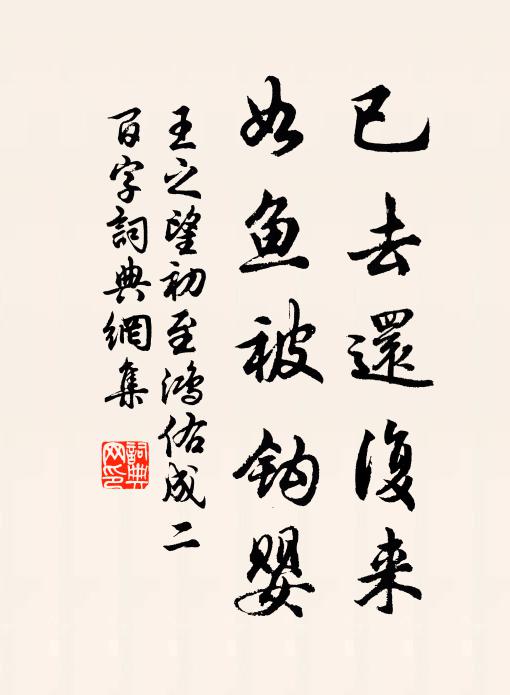 已去還復来
如魚被鈎嬰
王之望初至鴻佑成二
百字詞典網集
詞典
网印